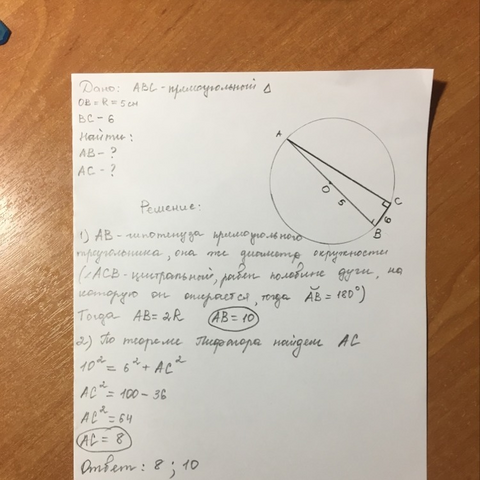 Дано: ABC - прямоугольной Δ
OB = R = 5 см
BC - 6
Найти:
AB - ?
AC - ?
A
O
5
C
6
B
Решение:
1) AB - гипотенуза прямоугольного
треугольника, она же диаметр окружности
(∠ACB - центральной, равен половине дуги, на
которую он опирается, тогда ᴗAB = 180°)
Тогда AB = 2R AB = 10
2) По теореме Пифагора найдем AC
10² = 6² + AC²
AC² = 100 - 36
AC² = 64
AC = 8
Ответ: 8 ; 10